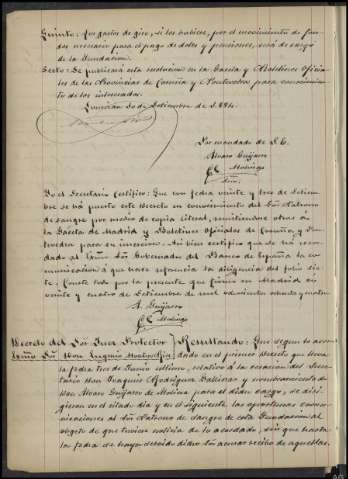 Quinto: Los gastos de giro, si los hubiese, por el movimiento de fon-
dos necesario para el pago de dotes y pensiones, será de cargo
de la Fundacion.
Sexto: Se publicará esta resolucion en la Gaceta y Boletines Oficia-
les de las Provincias de Coruña y Pontevedra para conocimien-
to de los interesados.
Setiembre de 1884.
Por mandado de S. E.
Alvaro Guijarro
El Molinga
Yo el Secretario Certifico: Que con fecha veinte y tres de Setiem-
bre se ha puesto este Decreto en conocimiento del Sor Patrono
de sangre por medio de copia literal, remitiendose otras á
la Gaceta de Madrid y Boletines Oficiales de Coruña, y Pon-
tevedra para su insercion. Asi bien certifico que se ha recor-
dado al Exmo Sor Gobernador del Banco de España la co-
municacion á que hace referencia la diligencia del folio
te. Conste todo por la presente que firmo en Madrid en
veinte y cuatro de Setiembre de mil ochocientos ochenta y
A. Guijarro
El Molinga
Decreto del Sor Juez Protector Resultando: Que segun lo acor-
Exmo Sor Don Eugenio dado en el primer Decreto que lleva
la fecha tres de Junio último, relativo á la cesacion del Secre-
tario Don Joaquin Rodriguez Gallinar y nombramiento de
Don Alvaro Guijarro de Molina para el dicho cargo, se diri-
gieron en el citado dia y en el siguiente las oportunas comu-
nicaciones al Sor Patrono de Sangre de esta Fundacion al
objeto de que tuviese noticia de lo acordado, sin que hasta
la fecha se haya servido dicho Sor acusar recibo de aquellas.